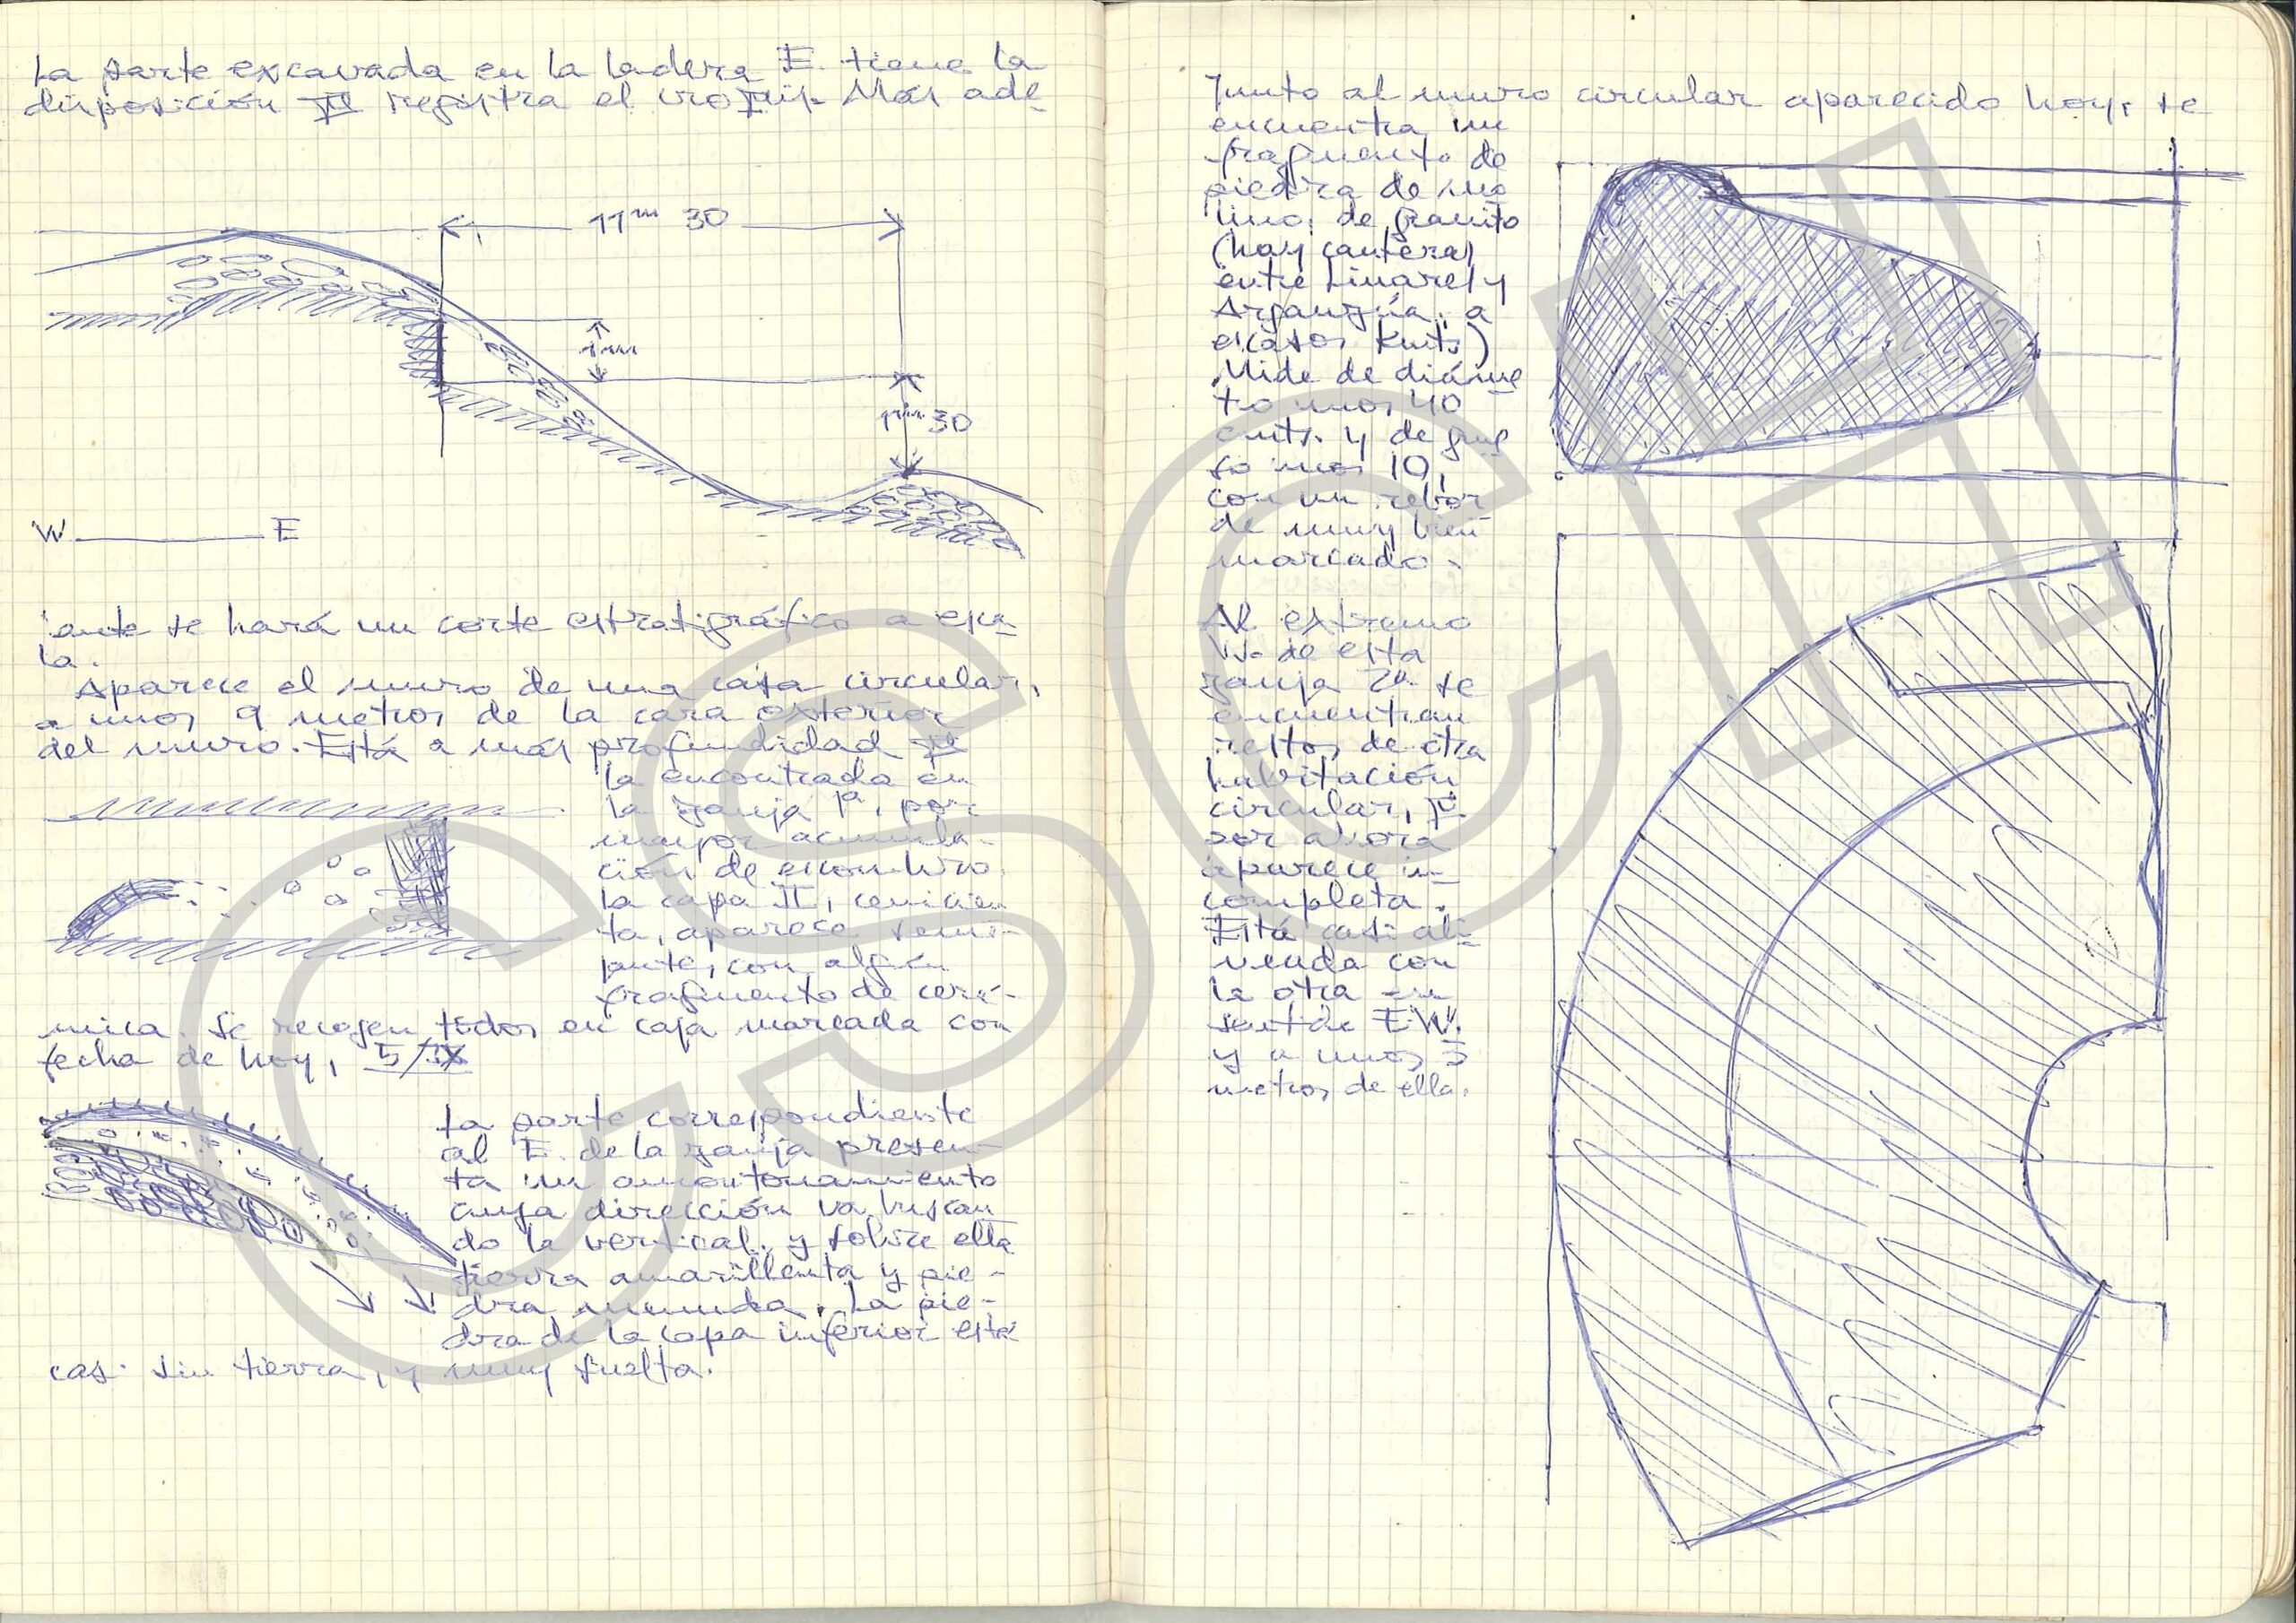 La parte excavada en la ladera E. tiene la
disposición q registra el croquis. Más ade-
11m 30
1m
1m 30
W E
lante se hará un corte estratigráfico a esca-
la.
Aparece el muro de una casa circular,
a unos 9 metros de la cara exterior
del muro. Está a más profundidad q
la encontrada en
la zanja 1ª, por
mayor acumula-
ción de escombro.
la capa II, cenicien
ta, aparece semi-
, con algún
fragmento de cerá-
mica. Se recogen todos en caja marcada con
fecha de hoy, 5/IX
La parte correspondiente
al E. de la zanja presen-
ta un amontonamiento
cuya dirección va buscan
do la vertical, y sobre ella
tierra amarillenta y pie-
dra menuda. La pie-
dra de la capa inferior está
casi sin tierra, y muy suelta.
Junto al muro circular aparecido hoy, se
encuentra un
fragmento de
piedra de mo
lino, de granito
(hay canteras
entre Linares y
Arganza, a
escasos Kmts)
Mide de diáme
tro unos 40
cmts. y de grue
so unos 10,
con un rebor
de muy bien
marcado.
Al extremo
W. de esta
zanja 2ª se
encuentran
restos de otra
habitación
circular, q.
por ahora
aparece in-
completa.
Está casi ali-
neada con
la otra en
sentido E W.
y a unos 3
metros de ella.
CSIC